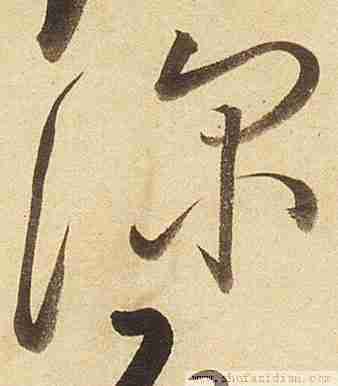 深
www.shufazidian.com